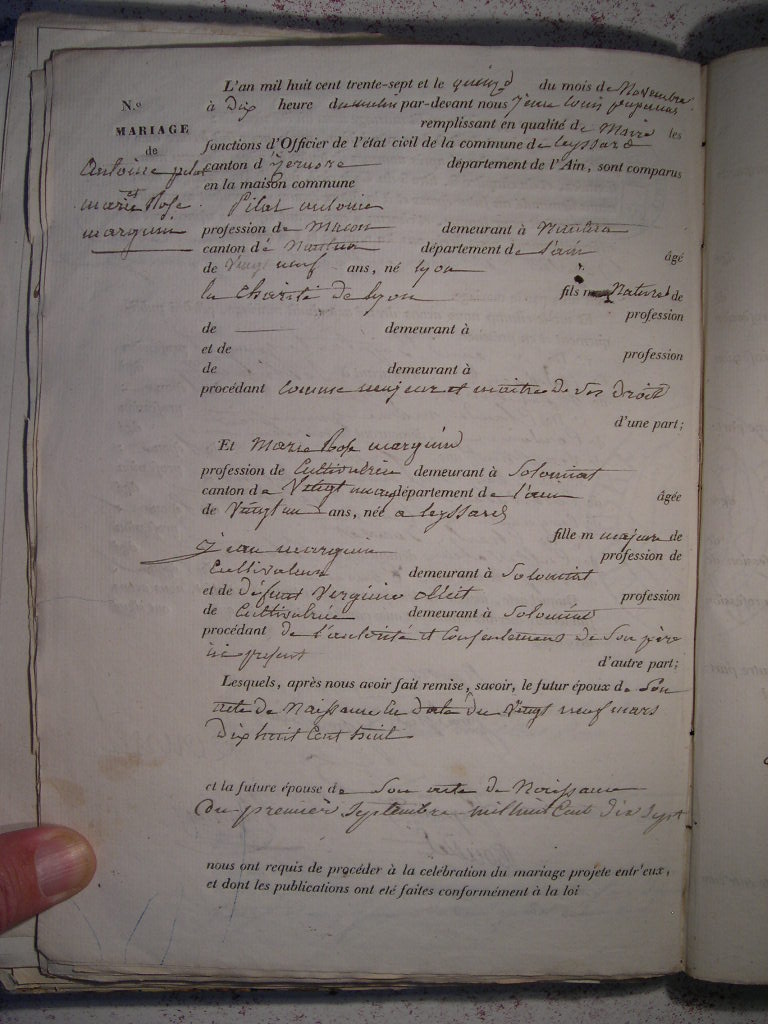 L'an mil huit cent trente-sept et le quinze du mois de Novembre
N.º
à Dix heure du matin par-devant nous louis
MARIAGE
remplissant en qualité de Maire les
de
fonctions d'Officier de l'état civil de la commune de leyssard
Antoine pilat
canton d département de l'Ain, sont comparus
et
en la maison commune
marie Rose
Pilat antoine
marguin
profession de Macon demeurant à Nantua
canton de Nantua département de l'ain âgé
de Vingt neuf ans, né lyon
la Charité de lyon fils Naturel de
profession
de demeurant à
et de profession
de demeurant à
procédant comme majeur et maitre de ses droit
d'une part;
Et Marie Rose marguin
profession de Cultivatrice demeurant à Solomiat
canton de département de l'ain âgée
de Vingt un ans, née a leyssard
fille m majeure de
Jean marguin profession de
Cultivateur demeurant à Solomiat
et de défunt profession
de Cultivatrice demeurant à Solomiat
procédant de l'autorité et Consentement de Son père
ici présent d'autre part;
Lesquels, après nous avoir fait remise, savoir, le futur époux de Son
acte de Naissance en date du Vingt neuf mars
Dix huit Cent huit
et la future épouse de Son acte de Naissance
du premier Septembre mil huit Cent dix Sept
nous ont requis de procéder à la celébration du mariage projete entr'eux,
et dont les publications ont eté faites conformément à la loi